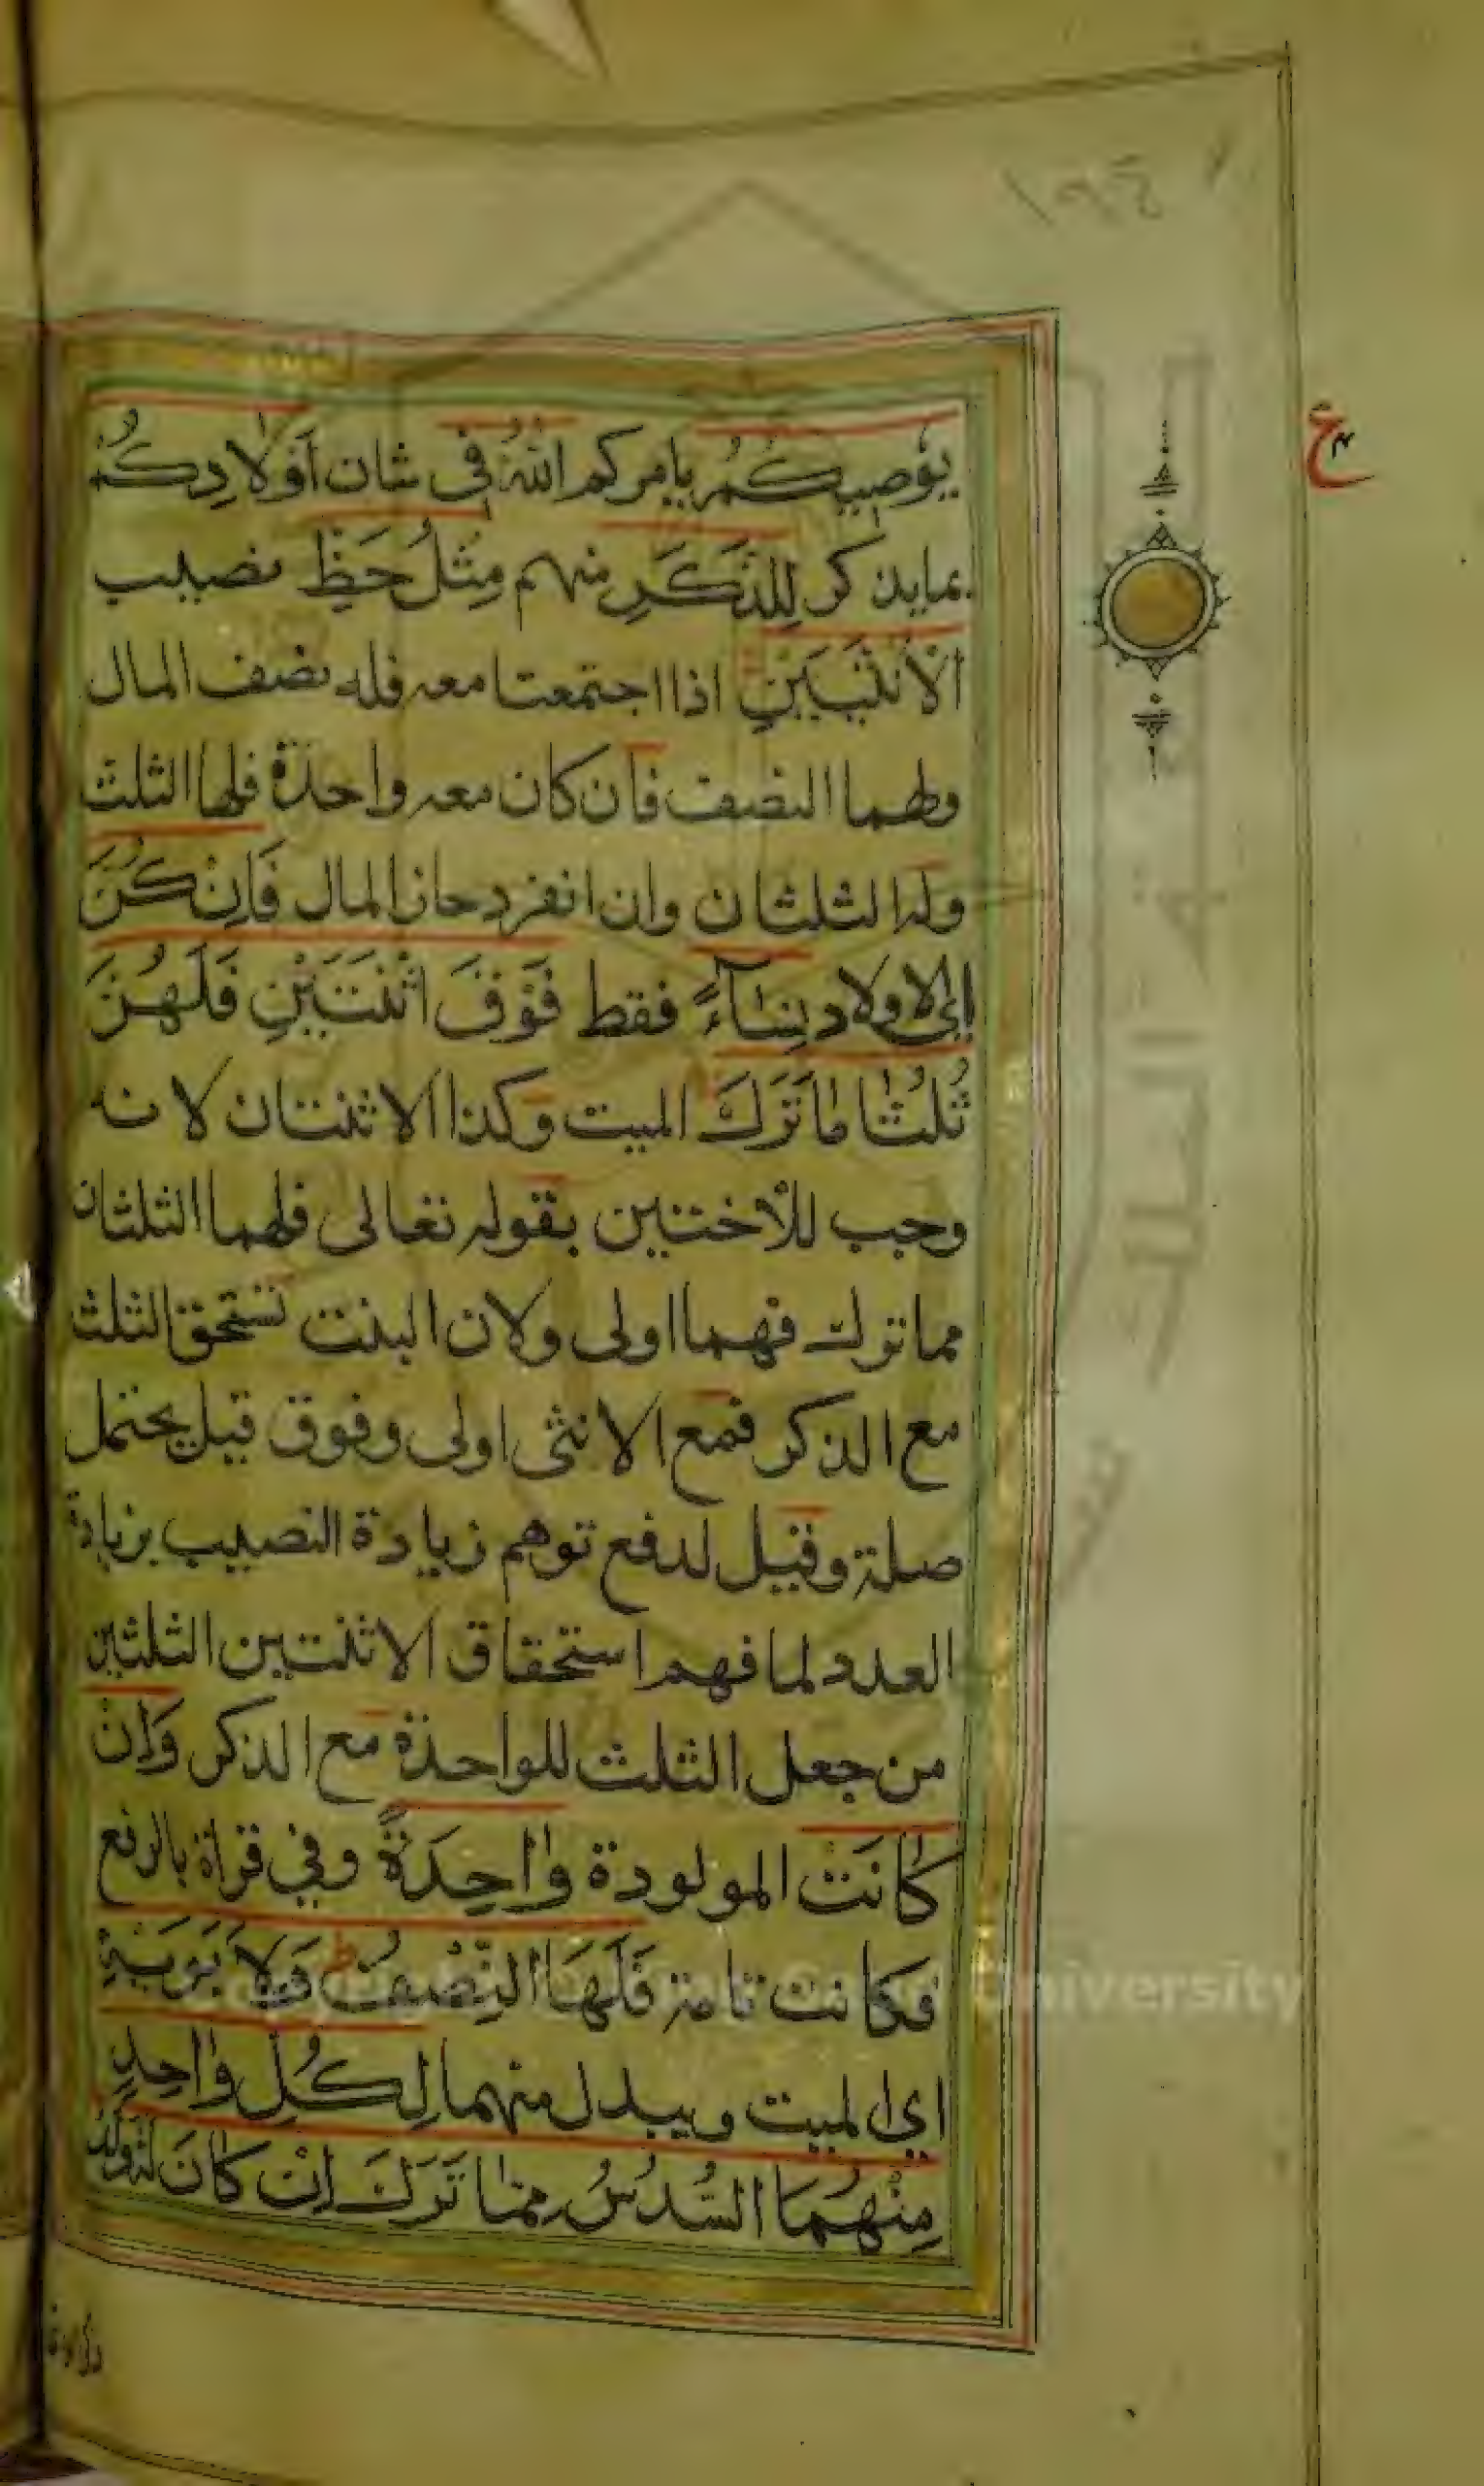 ١٩٤
ع
يُوصِيكُمُ يامركم اللهُ فِي شان أَوْلَادِكُمْ
بما يذكر لِلذَّكَرِ منهم مِثْلُ حَظِّ نصيب
الْأُنْثَيَيْنِ اذا اجتمعتا معه فله نصف المال
ولهما النصف فان كان معه واحدة فلها الثلث
وله الثلثان وان انفرد حاز المال فَإِنْ كُنَّ
اي الاولاد نِسَاءً فقط فَوْقَ اثْنَتَيْنِ فَلَهُنَّ
ثُلُثَا مَا تَرَكَ الميت وكذا الاثنتان لانه
وجب للاختين بقوله تعالى فلهما الثلثان
مما ترك فهما اولى ولان البنت تستحق الثلث
مع الذكر فمع الانثى اولى وفوق قيل يحتمل
صلة وقيل لدفع توهم زيادة النصيب بزيادة
العدد لما فهم استحقاق الاثنتين الثلثين
من جعل الثلث للواحدة مع الذكر وَإِنْ
كَانَتْ المولودة وَاحِدَةً وفي قراة بالرفع
فكانت تامة فَلَهَا النِّصْفُ ط وَلِأَبَوَيْهِ
اي الميت ويبدل منهما لِكُلِّ وَاحِدٍ
مِنْهُمَا السُّدُسُ مِمَّا تَرَكَ إِنْ كَانَ لَهُ وَلَدٌ
University